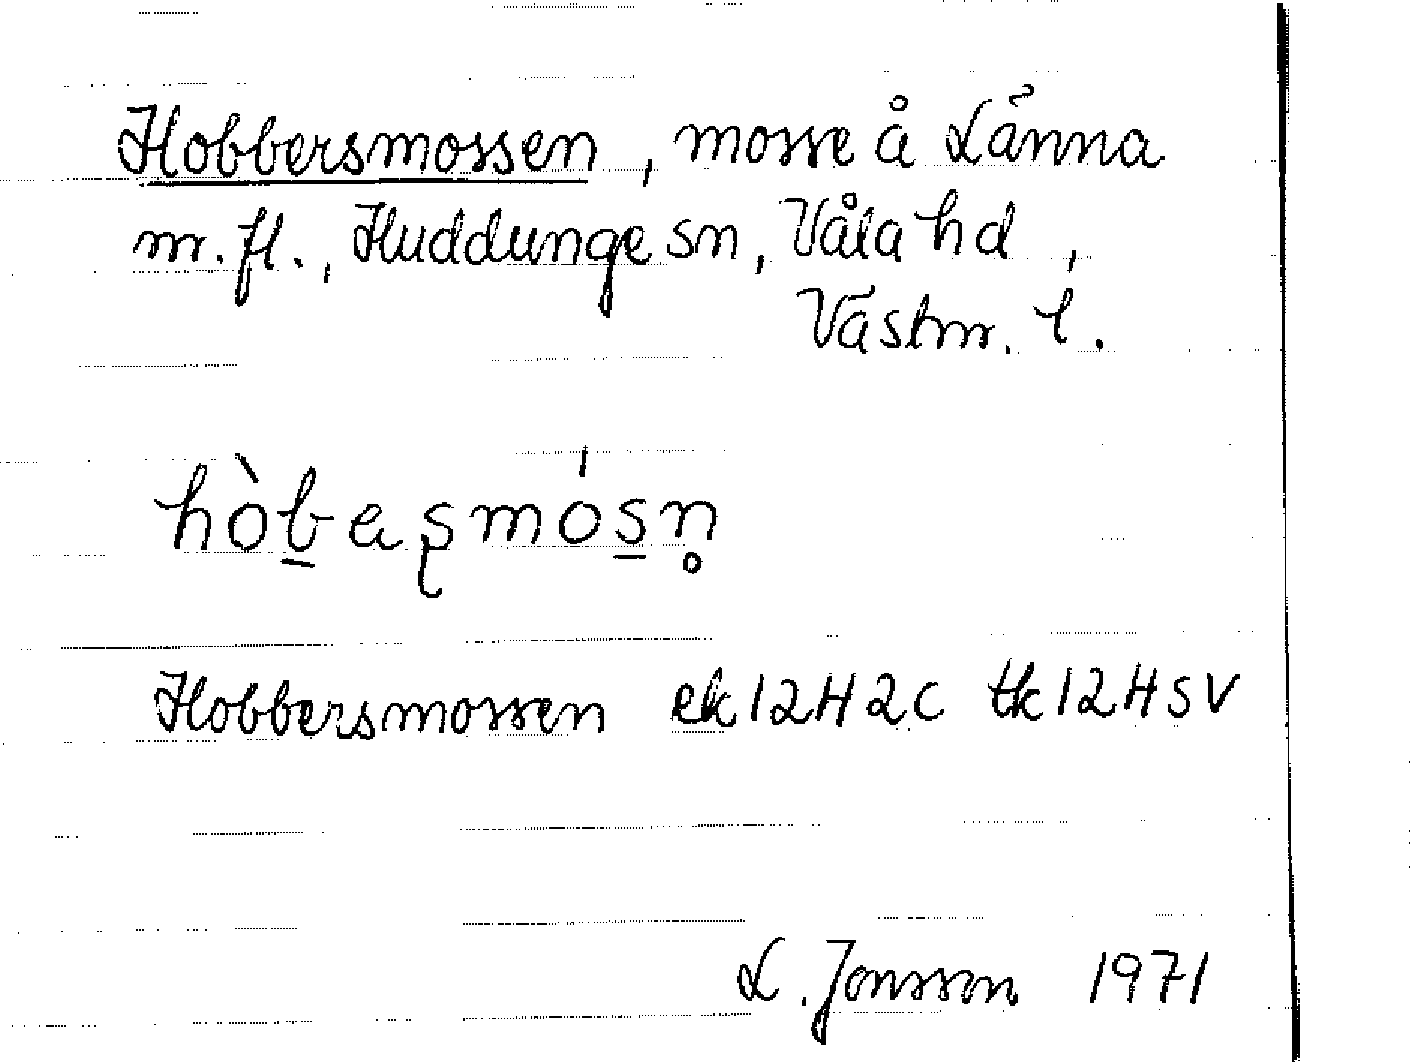 Hobbersmossen, mosse å Länna
m.fl., Huddunge sn, Våla hd,
Västm. l.
hòb̠eʂmós̠n̥
Hobbersmossen ek 12H2c tk 12HSV
L. Jonsson 1971